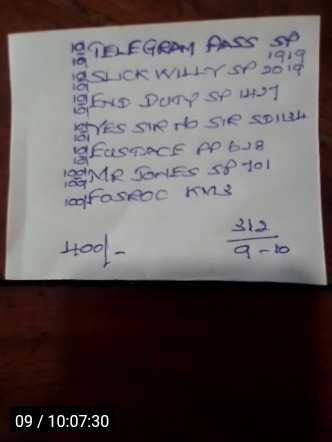 TELEGRAM PASS SP 1919
SLICK WILLY SP 2019
END DUTY SP 1427
YES SIR NO SIR SD1134
EUSTACE PP 628
100/ MR JONES SP 701
100/ FOSROC KM3
400/-
312
9-10
09 / 10:07:30